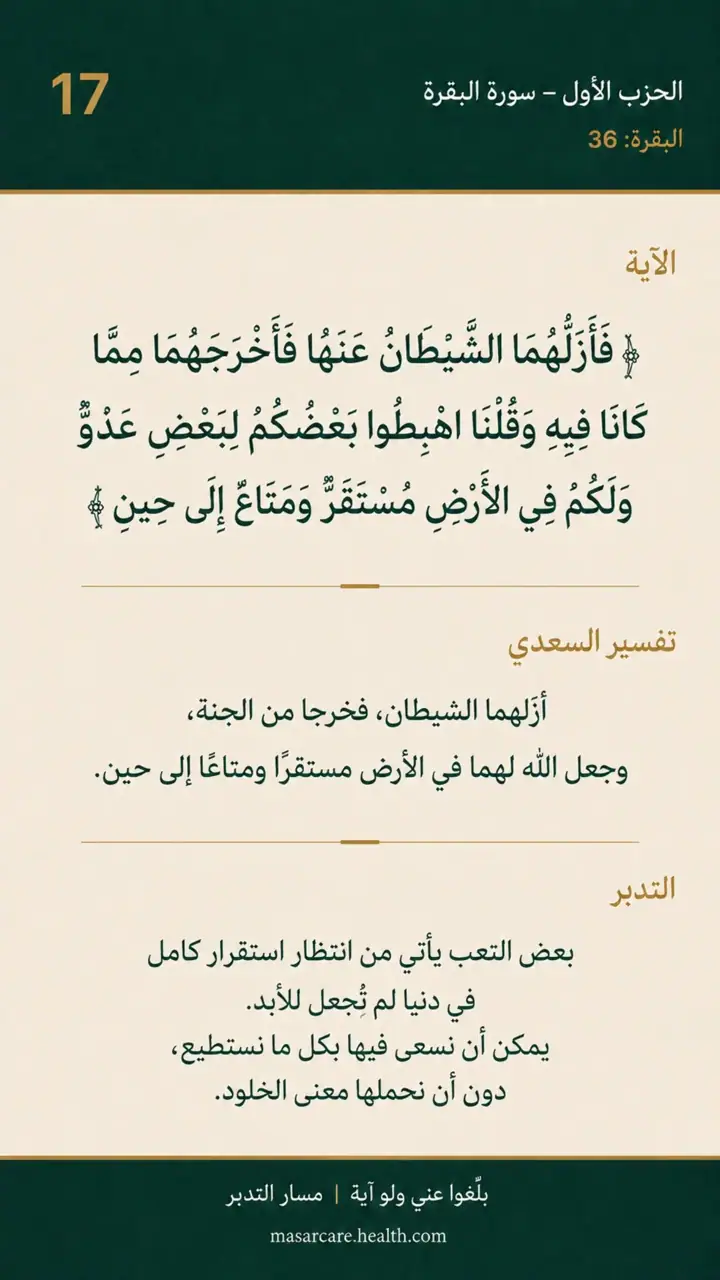 الحزب الأول – سورة البقرة
17
البقرة: 36
الآية
﴿ فَأَزَلُّهُمَا الشَّيْطَانُ عَنَهُا فَأَخْرَجَهُمَا مِمَّا
كَانَا فِيِهِ وَقُلْنَا اهْبِطُوا بَعْضُكُمُ لِبَعْضِ عَدْوٌّ
وَلَكُمُ فِي الأَرْضِ مُسْتَقَرٌّ وَمَتَاعٌ إِلَى حِينِ ﴾
تفسير السعدي
أزَلهما الشيطان، فخرجا من الجنة،
وجعل الله لهما في الأرض مستقرًا ومتاعًا إلى حين.
التدبر
بعض التعب يأتي من انتظار استقرار كامل
في دنيا لم تُجعل للأبد.
يمكن أن نسعى فيها بكل ما نستطيع،
دون أن نحملها معنى الخلود.
بلّغوا عني ولو آية | مسار التدبر
masarcare.health.com